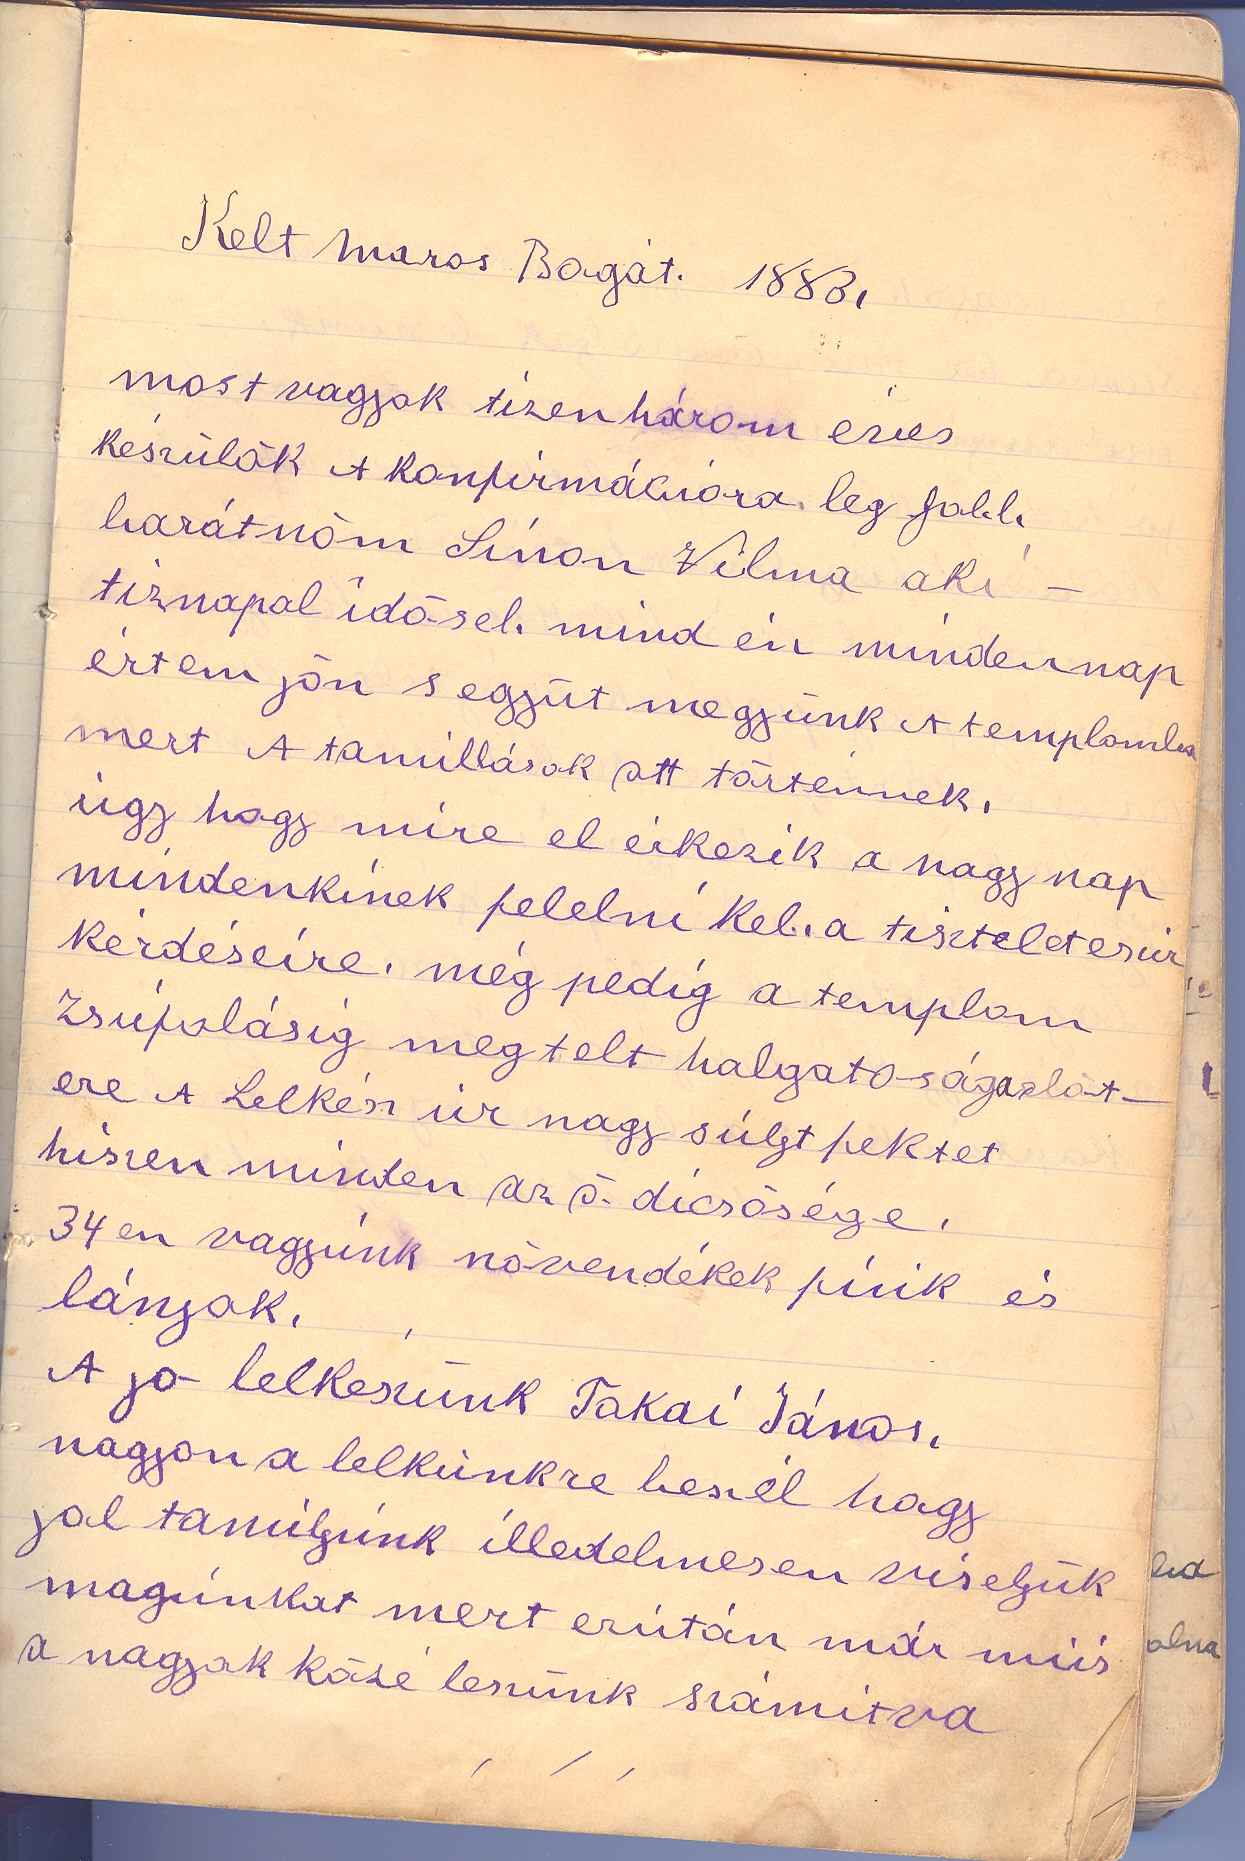 Kelt Maros Bogát. 1883.
most vagyok tizenhárom éves
készülök A konfirmációra. leg jobb
barátnöm Simon Vilma aki –
tiznapal idöseb. mind én mindennap
értem jön s együt megyünk A templomba
mert A tanullások ott történnek.
úgy hogy mire el érkezik a nagy nap
mindenkinek felelni kel. a tiszteletesúr
kérdéseire. még pedig a templom
zsúfolásig megtelt halgatoság elöt –
ere A Lelkész úr nagy súlyt fektet
hiszen minden az ö dicsösége.
34 en vagyunk növendékek fiúk és
lányok.
A jo lelkeszünk Takai János.
nagyon a lelkünkre beszél hogy
jol tanuljunk illedelmesen viseljük
magunkat mert ezután már miis
a nagyok közé leszünk számitva